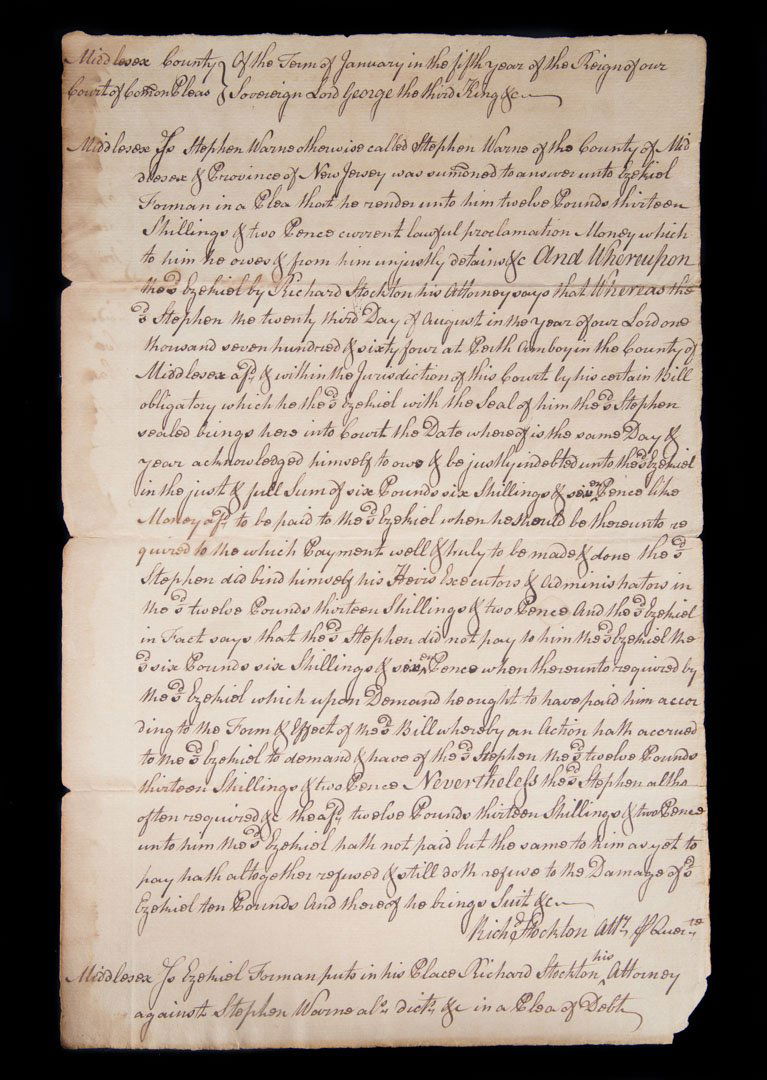 Middlesex County } Of the Term of January in the fifth year of the Reign of our
Court of Common Pleas } Sovereign Lord George the third King &c
Middlesex Ss Stephen Warne otherwise called Stephen Warne of the County of Mid
dlesex & Province of New Jersey was summoned to answer unto Ezekiel
Forman in a Plea that he render unto him twelve Pounds thirteen
Shillings & two Pence current lawful proclamation Money which
to him he owes & from him unjustly detains &c And Whereupon
the sd Ezekiel by Richard Stockton his Attorney says that Whereas the
sd Stephen the twenty third Day of August in the year of our Lord one
thousand seven hundred & sixty four at Perth Amboy in the County of
Middlesex afsd & within the Jurisdiction of this Court by his certain Bill
obligatory which he the sd Ezekiel with the Seal of him the sd Stephen
sealed brings here into Court the Date whereof is the same Day &
year acknowledged himself to owe & be justly indebted unto the sd Ezekiel
in the just & full Sum of six Pounds six Shillings & seven Pence like
Money afsd to be paid to the sd Ezekiel when he should be thereunto re
quired to the which Payment well & truly to be made & done the sd
Stephen did bind himself his Heirs Executors & Administrators in
the sd twelve Pounds thirteen Shillings & two Pence And the sd Ezekiel
in Fact says that the sd Stephen did not pay to him the sd Ezekiel the
sd six Pounds six Shillings & seven Pence when thereunto required by
the sd Ezekiel which upon Demand he ought to have paid him accor
ding to the Form & Effect of the sd Bill whereby an Action hath accrued
to the sd Ezekiel to demand & have of the sd Stephen the sd twelve Pounds
thirteen Shillings & two Pence Nevertheless the sd Stephen altho
often required &c the afsd twelve Pounds thirteen Shillings & two Pence
unto him the sd Ezekiel hath not paid but the same to him as yet to
pay hath altogether refused & still doth refuse to the Damage of sd
Ezekiel ten Pounds And thereof he brings Suit &c
Richd Stockton Atty pr Querte
Middlesex Ss Ezekiel Forman puts in his Place Richard Stockton his Attorney
against Stephen Warne als dict &c in a Plea of Debt